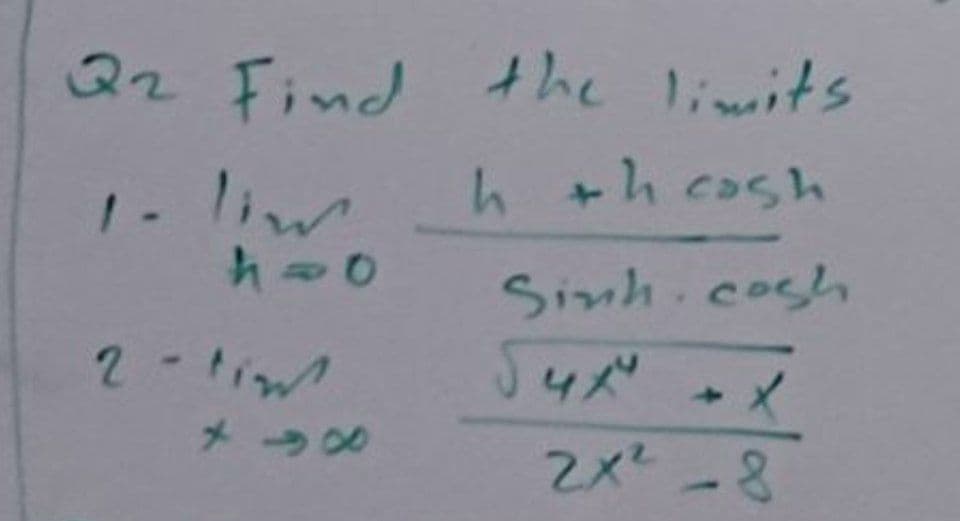 Q2 Find the limits
1- lim h + h cosh
h→0 sinh . cosh
2 - lim √4x⁴ + x
x→∞ 2x² - 8